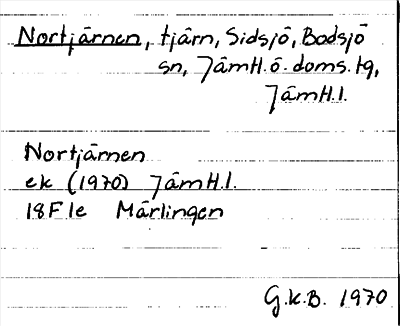 Nortjärnen, tjärn, Sidsjö, Bodsjö
sn, Jämtl. ö. doms. tg,
Jämtl. l.
Nortjärnen
ek (1970) Jämtl. l.
18F 1e Märlingen
G.K.B. 1970